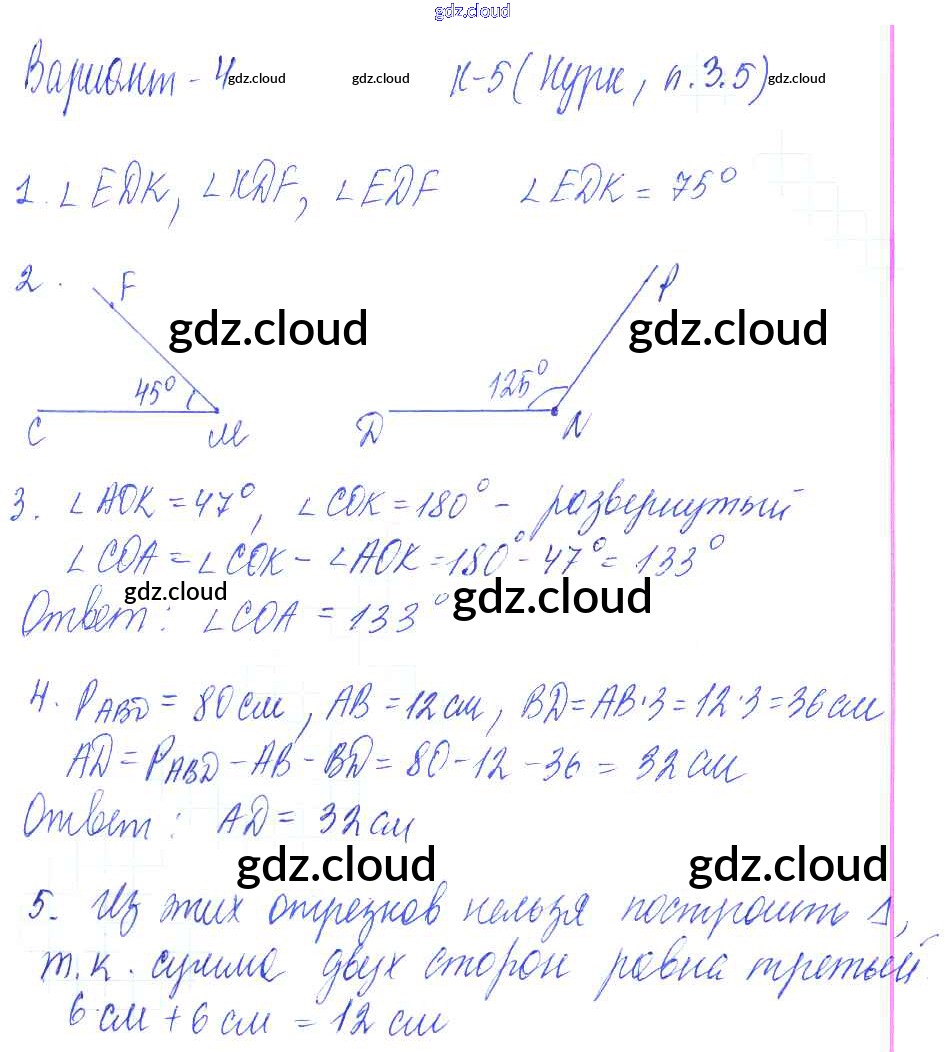 gdz.cloud
Вариант-4 gdz.cloud gdz.cloud К-5 (Нурк, п.3.5) gdz.cloud
1. ∠EDK, ∠KDF, ∠EDF ∠EDK = 75°
2.
F P
gdz.cloud gdz.cloud
45° 125°
C M D N
3. ∠AOK = 47°, ∠COK = 180° - развернутый
∠COA = ∠COK - ∠AOK = 180° - 47° = 133°
gdz.cloud gdz.cloud
Ответ: ∠COA = 133°
4. P_ABD = 80 см, AB = 12 см, BD = AB·3 = 12·3 = 36 см
AD = P_ABD - AB - BD = 80 - 12 - 36 = 32 см
Ответ: AD = 32 см
gdz.cloud gdz.cloud
5. Из этих отрезков нельзя построить Δ,
т.к. сумма двух сторон равна третьей.
6 см + 6 см = 12 см